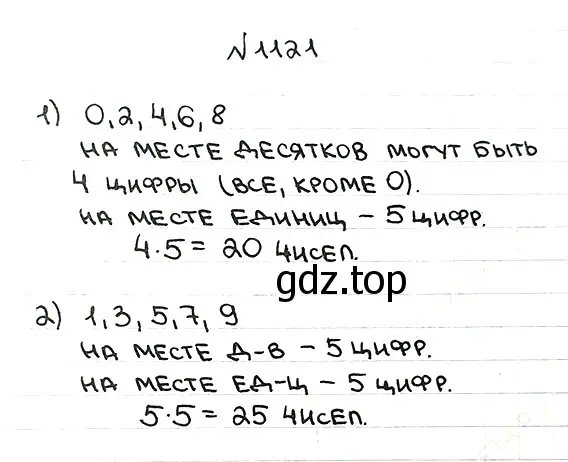 №1121
1) 0,2,4,6,8
НА МЕСТЕ ДЕСЯТКОВ МОГУТ БЫТЬ
4 ЦИФРЫ (ВСЕ, КРОМЕ 0).
НА МЕСТЕ ЕДИНИЦ – 5 ЦИФР.
4·5 = 20 ЧИСЕЛ.
gdz.top
2) 1,3,5,7,9
НА МЕСТЕ Д-В – 5 ЦИФР.
НА МЕСТЕ ЕД-Ц – 5 ЦИФР.
5·5 = 25 ЧИСЕЛ.